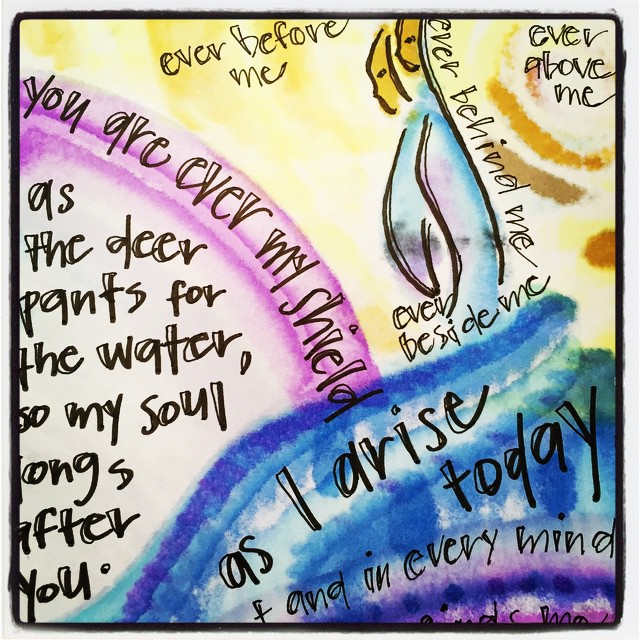 ever before
me
ever
above
me
ever behind me
you are ever my shield
as
the deer
pants for
the water,
so my soul
longs
after
you.
ever
beside me
as I arise
today
+ and in every mind